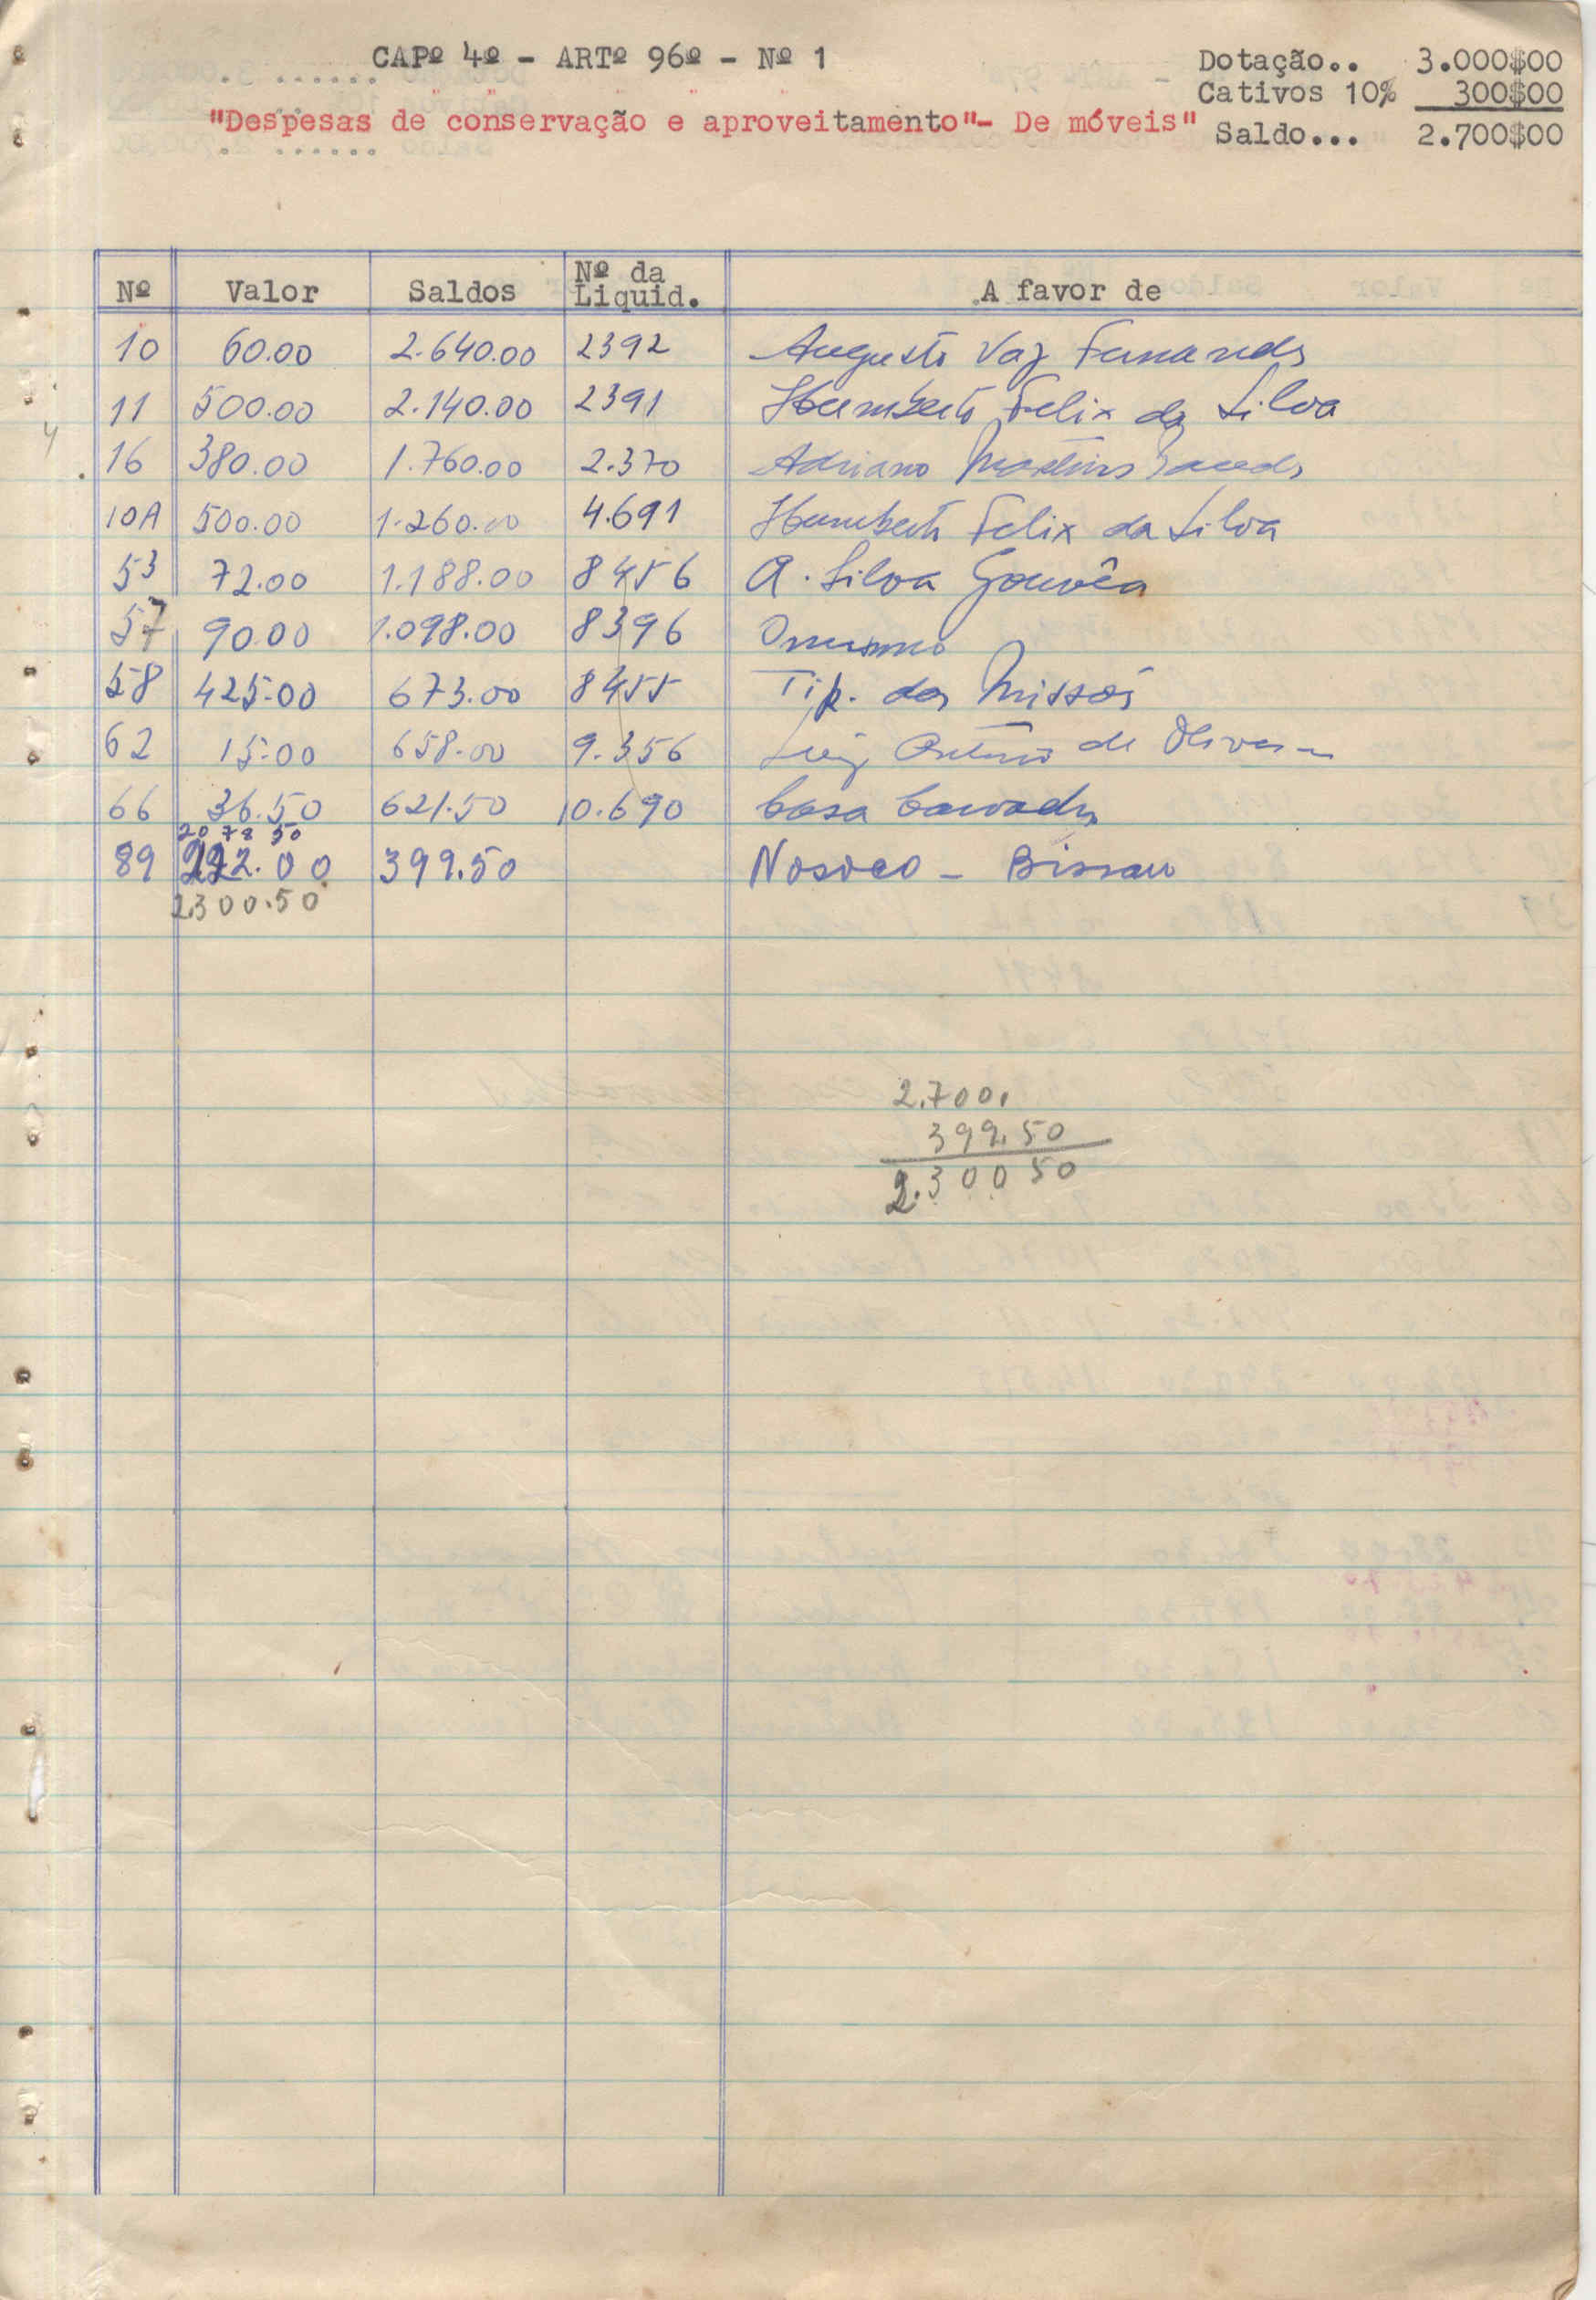 CAPº 4º - ARTº 96º - Nº 1
Dotação.. 3.000$00
Cativos 10% 300$00
"Despesas de conservação e aproveitamento"- De móveis"
Saldo... 2.700$00
Nº Valor Saldos Nº da Liquid. A favor de
10 60.00 2.640.00 2392 Augusto Vaz Fernandes
11 500.00 2.140.00 2391 Humberto Felix da Silva
16 380.00 1.760.00 2.370 Adriano Martins
10A 500.00 1.260.00 4.691 Humberto Felix da Silva
53 72.00 1.188.00 8456 A. Silva Gouvêa
57 90.00 1.098.00 8396 O mesmo
58 425.00 673.00 8455 Tip. das Missões
62 15.00 658.00 9.356 Luiz António de Oliveira
66 36.50 621.50 10.690 Casa
2078 50
89 222.00 399.50 Nosoco - Bissau
2.300.50
2.700.
399.50
2.300 50